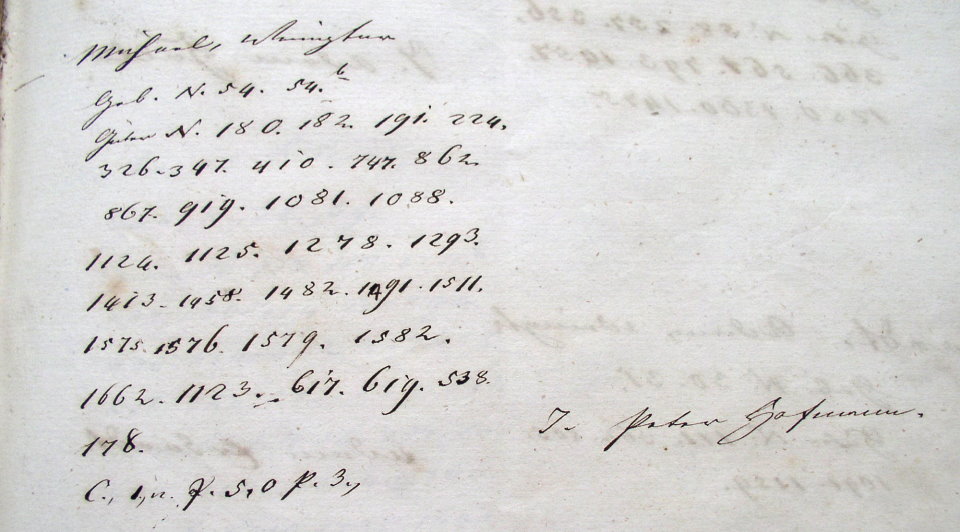 Michael,
Geb. N. 54. 54.b
Güter N. 180. 182. 191. 224.
326. 347. 410. 747. 862.
867. 919. 1081. 1088.
1124. 1125. 1278. 1293.
1413. 1458. 1482. 1491. 1511.
1575. 1576. 1579. 1582.
1662. 1123. 617. 619. 538.
178.
J. Peter Hofmann.